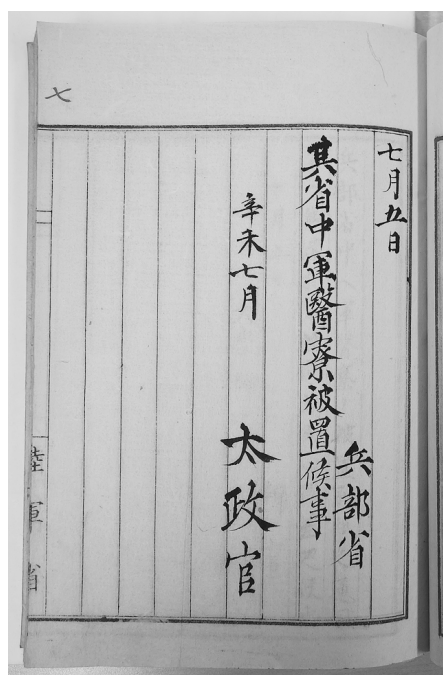 七月五日
兵部省
其省中軍醫寮被置候事
辛未七月
太政官
七
陸軍省